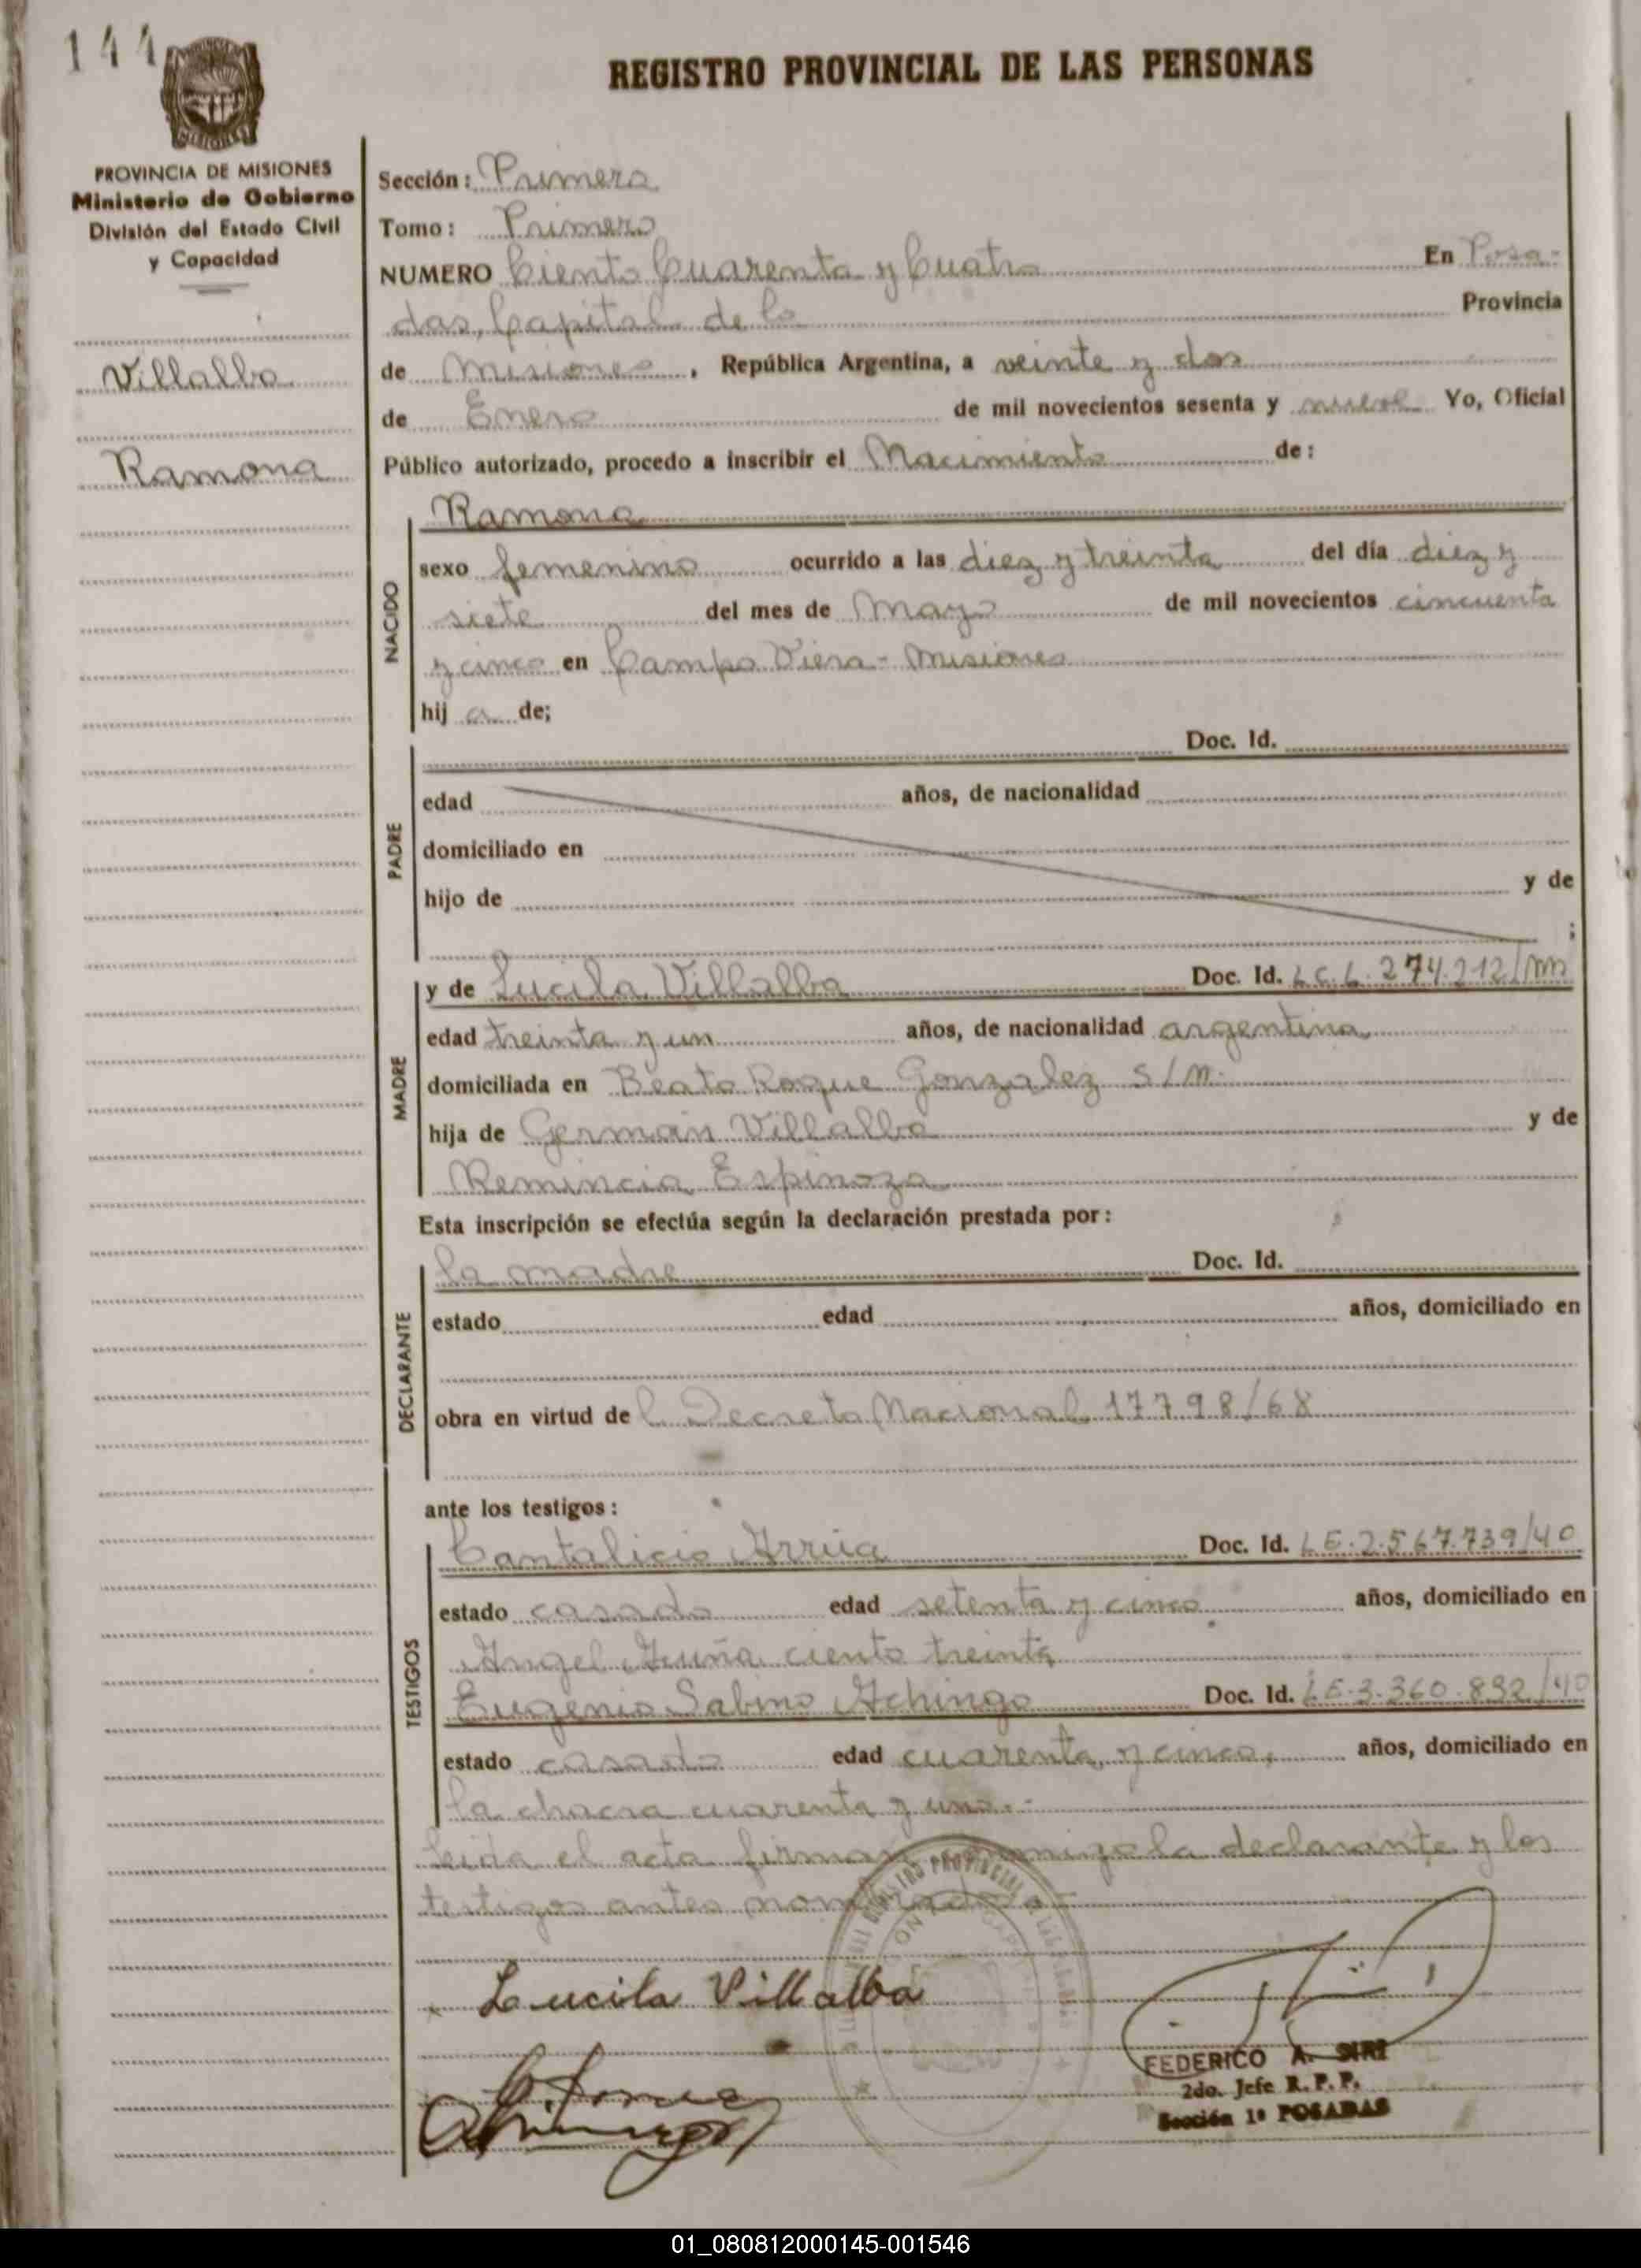 144
REGISTRO PROVINCIAL DE LAS PERSONAS
PROVINCIA DE MISIONES
Ministerio de Gobierno
División del Estado Civil
y Capacidad
Villalba
Ramona
Sección: Primera
Tomo: Primero
NUMERO Ciento Cuarenta y Cuatro En Posa-
das, Capital de la Provincia
de Misiones, República Argentina, a veinte y dos
de Enero de mil novecientos sesenta y nueve Yo, Oficial
Público autorizado, procedo a inscribir el Nacimiento de:
NACIDO
Ramona
sexo femenino ocurrido a las diez y treinta del día diez y
siete del mes de Mayo de mil novecientos cincuenta
y cinco en Campo Viera - Misiones
hij a de;
PADRE
Doc. Id.
edad años, de nacionalidad
domiciliado en
hijo de y de
;
MADRE
y de Lucila Villalba Doc. Id. L.C.L. 274.212/
edad treinta y un años, de nacionalidad argentina
domiciliada en Beato Roque Gonzalez s/n.
hija de German Villalba y de
Remincia Espinoza
Esta inscripción se efectúa según la declaración prestada por:
DECLARANTE
la madre Doc. Id.
estado edad años, domiciliado en
obra en virtud de l Decreto Nacional 17798/68
ante los testigos:
TESTIGOS
Cantalicio Arrua Doc. Id. L.E. 2.567.739/40
estado casado edad setenta y cinco años, domiciliado en
Angel Acuña ciento treinta
Eugenio Sabino Achinga Doc. Id. L.E. 3.360.832/40
estado casado edad cuarenta y cinco, años, domiciliado en
la chacra cuarenta y uno.-
Leida el acta firman conmigo la declarante y los
testigos antes nombrados.-
Lucila Villalba
FEDERICO A. SIRI
2do. Jefe R.P.P.
Sección 1ª POSADAS
01_080812000145-001546